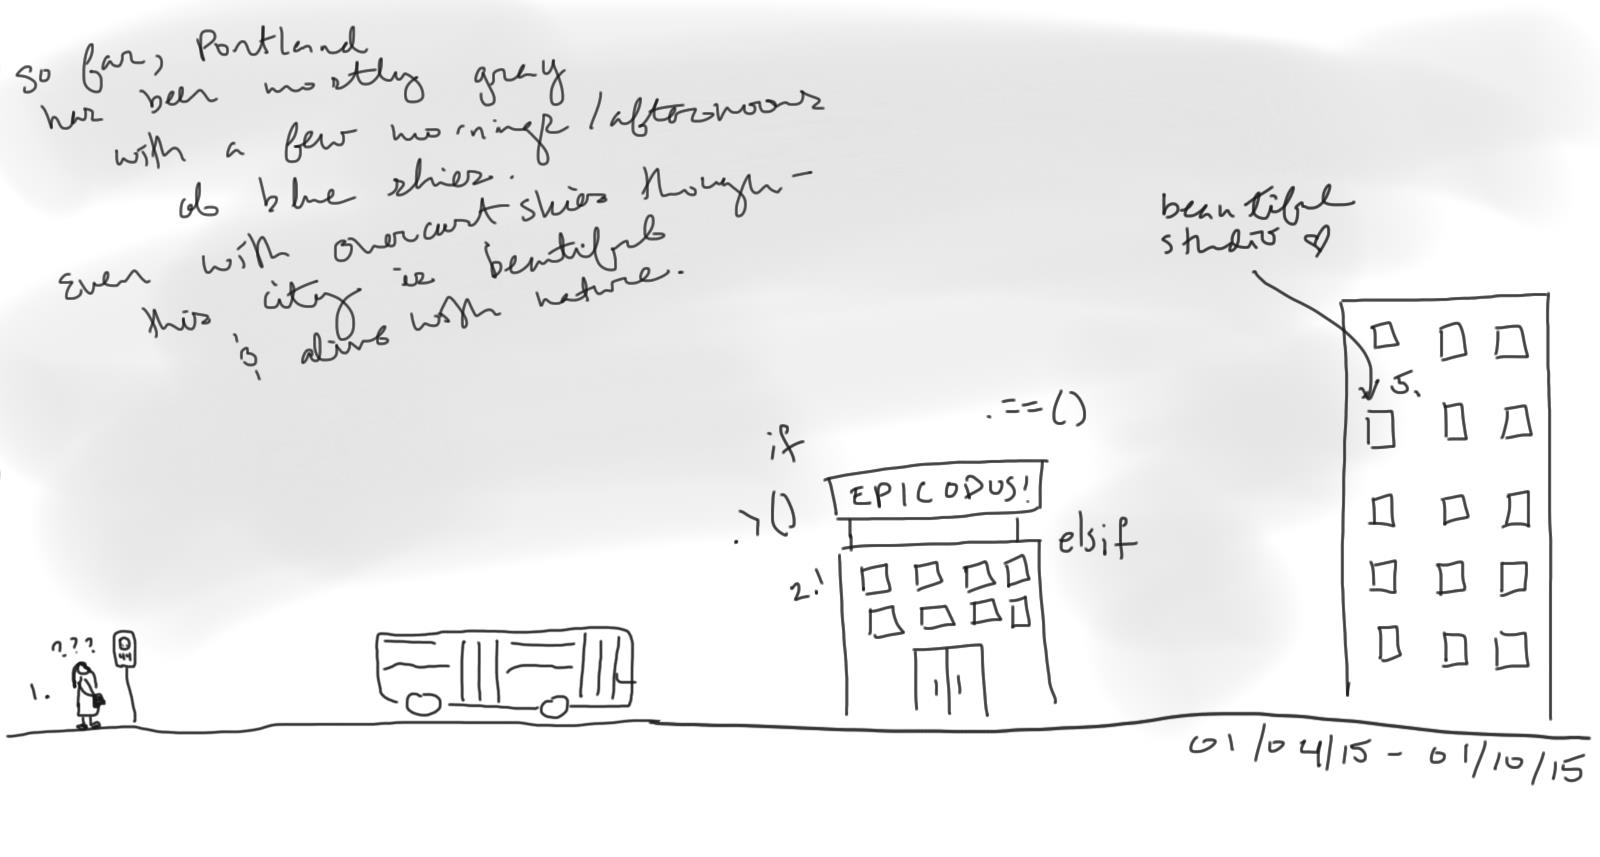 So far, Portland
has been mostly gray
with a few mornings/afternoons
of blue skies.
Even with overcast skies though -
this city is beautiful
& alive with nature.
beautiful
studio ♡
5.
.==()
if
EPICODUS!
.>()
elsif
2.!
???
44
1.
01/04/15 - 01/10/15